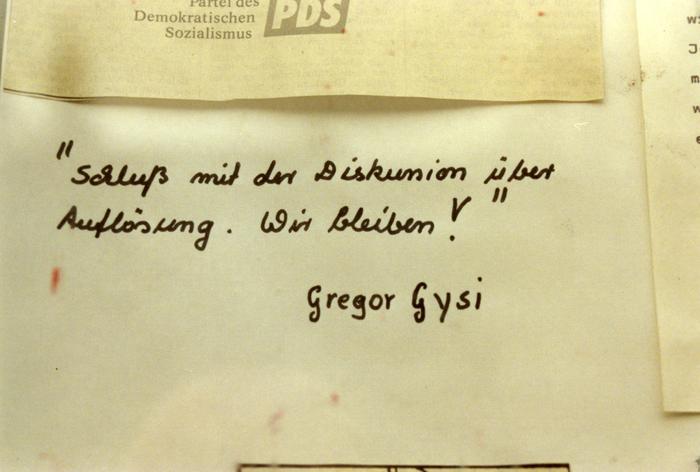 Partei des
Demokratischen
Sozialismus
PDS
"Schluß mit der Diskussion über
Auflösung. Wir bleiben!"
Gregor Gysi
w
J
m
w
e